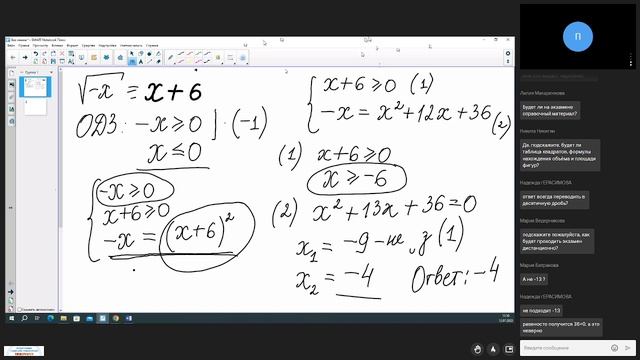 √-x = x+6
ОДЗ: -x ≥ 0 ] · (-1)
x ≤ 0
{ -x ≥ 0
x+6 ≥ 0
-x = (x+6)²
{ x+6 ≥ 0 (1)
-x = x²+12x+36 (2)
(1) x+6 ≥ 0
x ≥ -6
(2) x²+13x+36=0
x₁ = -9 - не уд (1)
x₂ = -4 Ответ: -4
П
Лилия Макаренкова
Будет ли на экзамене справочный материал?
Никита Никитин
Да, подскажите, будет ли таблица квадратов, формулы нахождения объёма и площади фигур?
Надежда ГЕРАСИМОВА
ответ всегда переводить в десятичную дробь?
Мария Ведерникова
подскажите пожалуйста, как будет проходить экзамен дистанционно?
Мария Багракова
А не -13 ?
Надежда ГЕРАСИМОВА
не подходит -13
равенисто получится 36=0. а это неверно
Введите сообщение